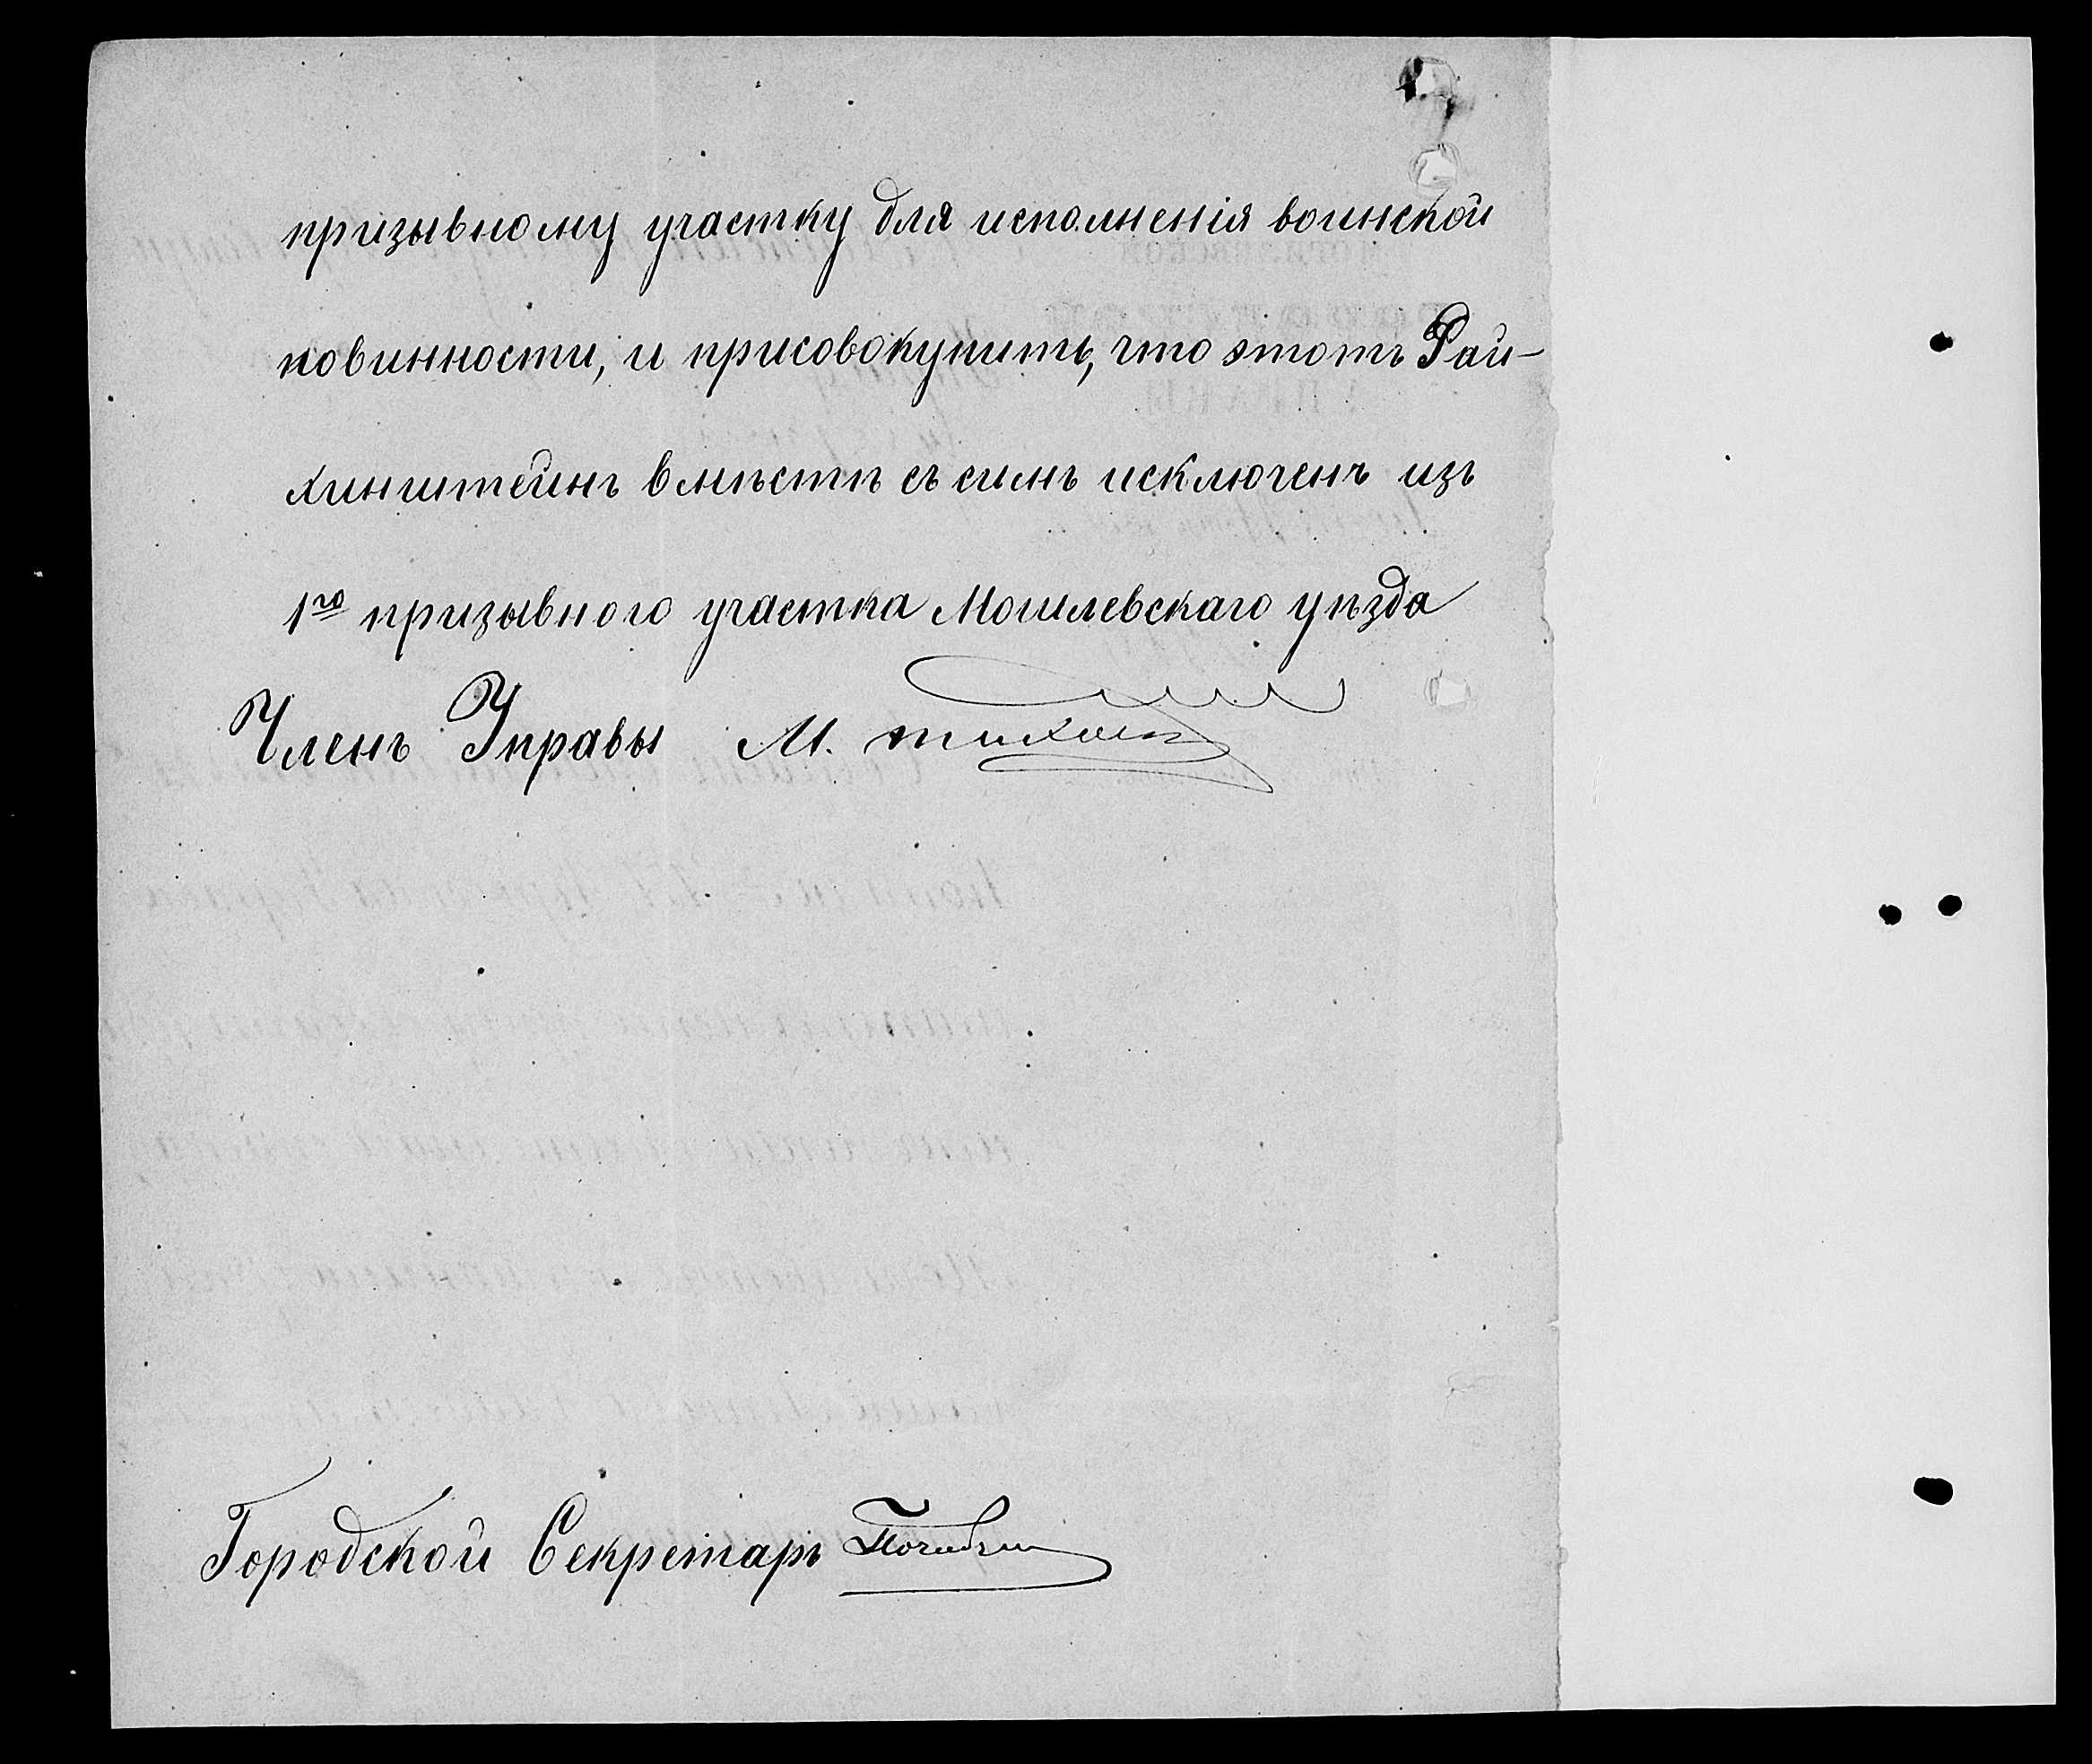 призывному участку для исполненія воинской
повинности, и присовокупить, что этотъ Рай-
хинштейнъ вмѣстѣ съ симъ исключенъ изъ
1го призывного участка Могилевскаго уѣзда
Членъ Управы М.
Городской Секретарь